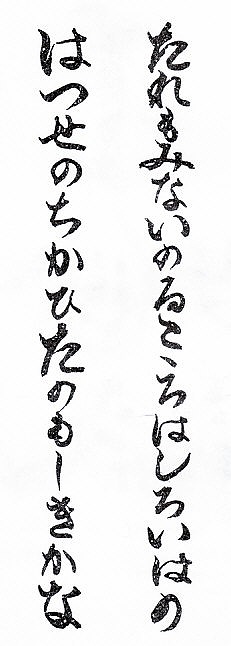 たれもみないのるこゝろはしろいはの
はつせのちかひたのもしきかな